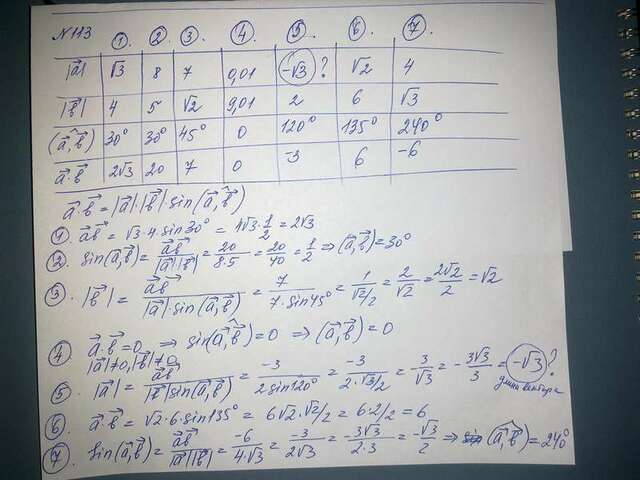 №113 ① ② ③. ④ ⑤ ⑥ ⑦.
|a⃗| √3 8 7 0,01 -√3 ? √2 4
|b⃗| 4 5 √2 9,01 2 6 √3
(a⃗,^b⃗) 30° 30° 45° 0 120° 135° 240°
a⃗·b⃗ 2√3 20 7 0 -3 6 -6
a⃗·b⃗=|a⃗|·|b⃗|·sin(a⃗,^b⃗)
① a⃗b⃗ = √3·4·sin30° = 4√3·1/2 = 2√3
② sin(a⃗,b⃗) = a⃗b⃗/|a⃗||b⃗| = 20/8·5 = 20/40 = 1/2 ⇒ (a⃗,^b⃗)=30°
③ |b⃗| = a⃗b⃗/|a⃗|sin(a⃗,^b⃗) = 7/7·sin45° = 1/√2/2 = 2/√2 = 2√2/2 = √2
④ a⃗·b⃗=0 ⇒ sin(a⃗,^b⃗)=0 ⇒ (a⃗,^b⃗)=0
|a⃗|≠0, |b⃗|≠0
⑤ |a⃗| = a⃗b⃗/|b⃗|sin(a⃗,^b⃗) = -3/2sin120° = -3/2·√3/2 = 3/√3 = -3√3/3 = -√3 ?
длина вектора
⑥ a⃗·b⃗ = √2·6·sin135° = 6√2·√2/2 = 6·2/2 = 6
⑦ sin(a⃗,b⃗) = a⃗b⃗/|a⃗||b⃗| = -6/4·√3 = -3/2√3 = -3√3/2·3 = -√3/2 ⇒ (a⃗,^b⃗)=240°